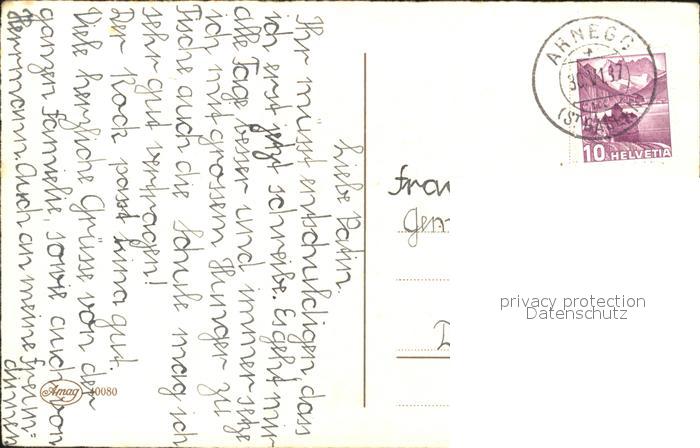 Liebe Patin.
Ihr müsst entschuldigen, dass
ich erst jetzt schreibe. Es geht mir
alle Tage besser und immer setze
ich mit grossem Hunger zu
Tische auch die Schule mag ich
sehr gut vertragen!
Der Rock passt prima gut.
Viele herzliche Grüsse von der
ganzen Familie, sowie auch von
Herrmann. Auch an meine Freun=
dinnen
Amag 40080
ARNEGG
(ST. GALLEN)
10 HELVETIA
Frau
privacy protection
Datenschutz